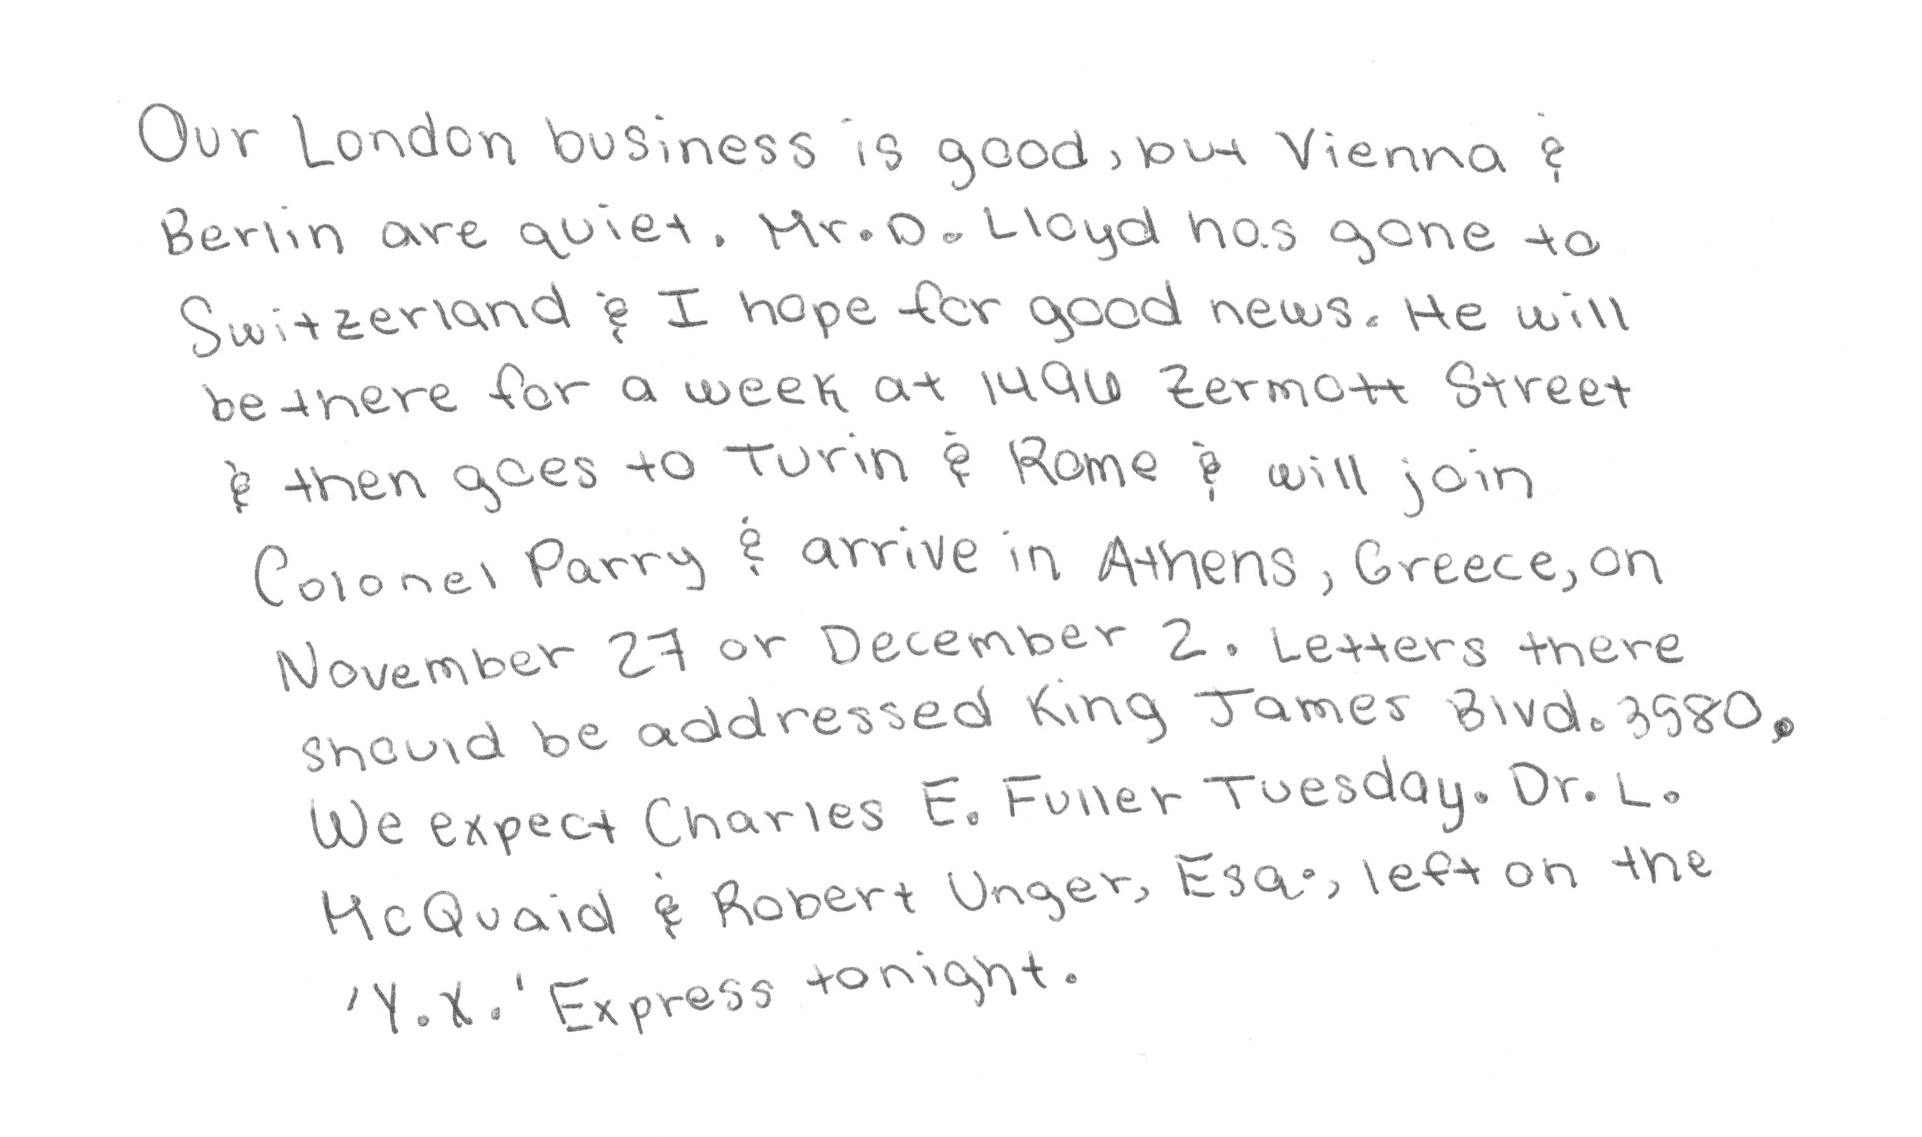 Our London business is good, but Vienna &
Berlin are quiet. Mr. D. Lloyd has gone to
Switzerland & I hope for good news. He will
be there for a week at 1496 Zermott Street
& then goes to Turin & Rome & will join
Colonel Parry & arrive in Athens, Greece, on
November 27 or December 2. Letters there
should be addressed King James Blvd. 3580.
We expect Charles E. Fuller Tuesday. Dr. L.
McQuaid & Robert Unger, Esq., left on the
'Y.X.' Express tonight.